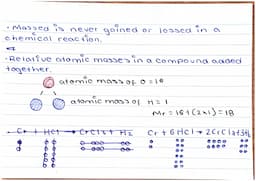 • Massed is never gained or lossed in a
chemical reaction.
• Relative atomic masses in a compound added
together.
atomic mass of O = 16
atomic mass of H = 1
Mr = 16+(2x1) = 18
Cr + HCl → CrCl3 + H2 Cr + 6HCl → 2CrCl3+3H2